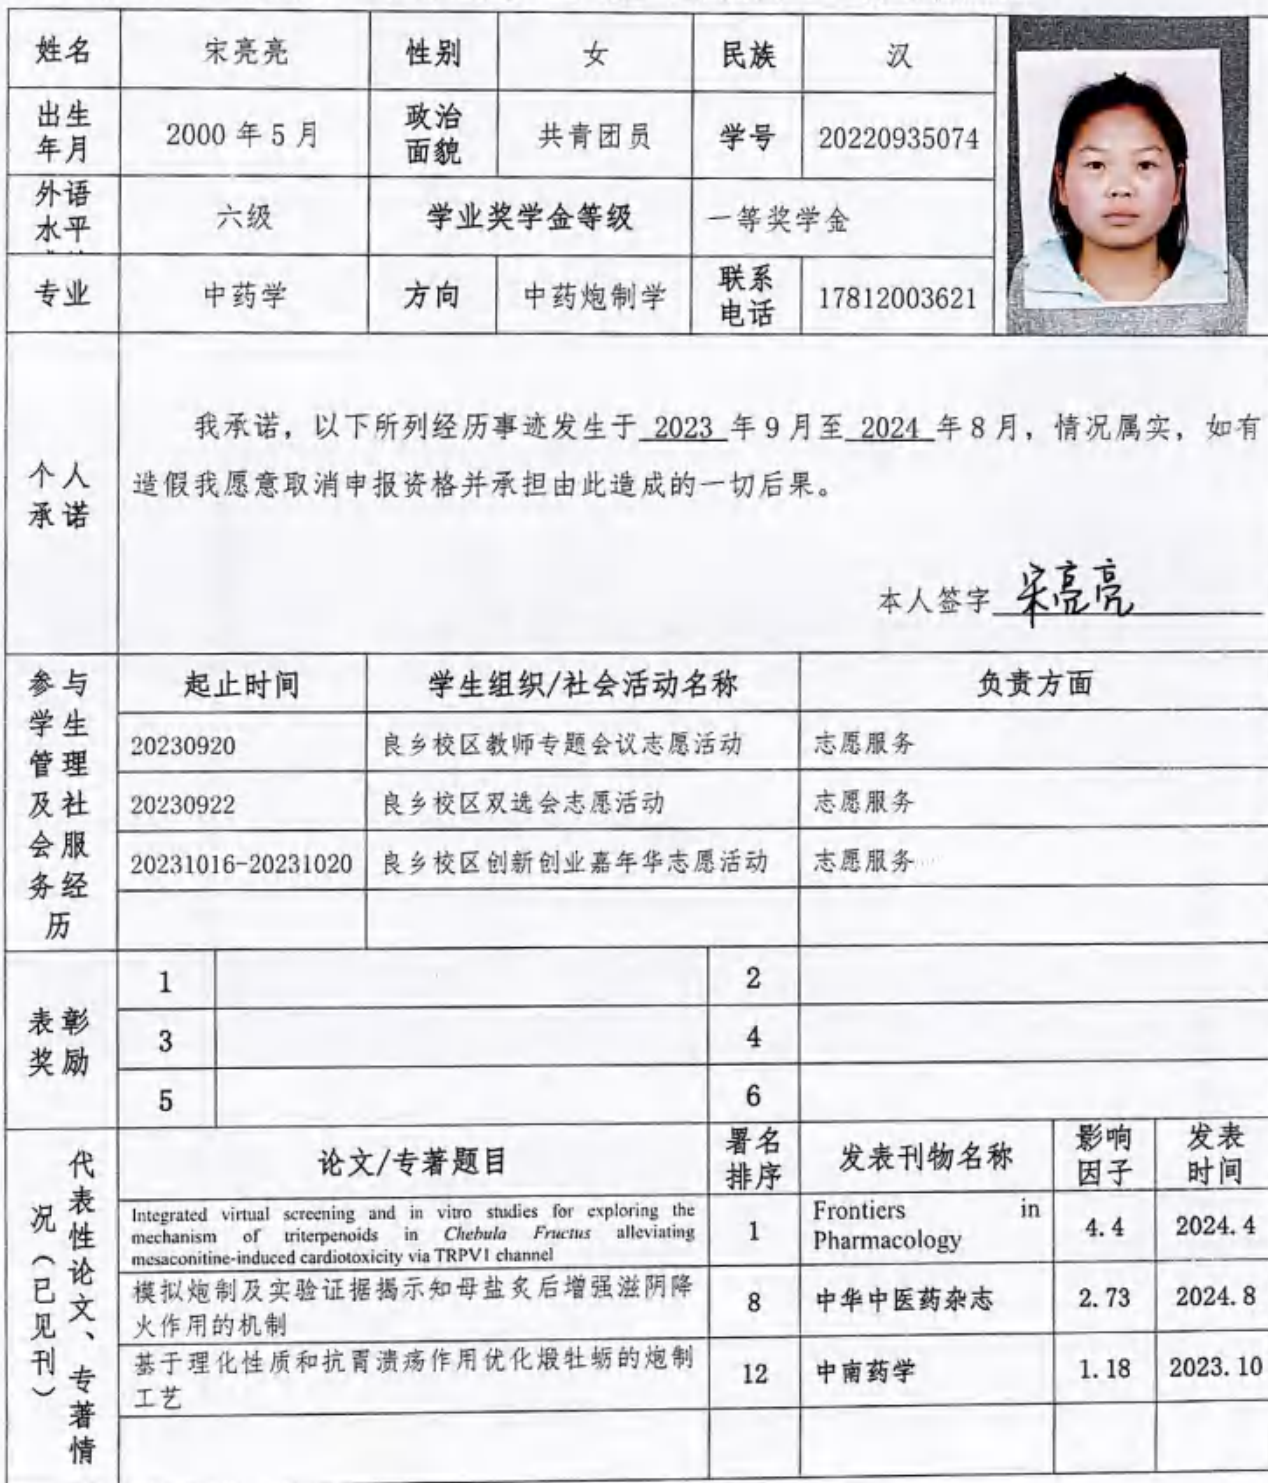 姓名 宋亮亮 性别 女 民族 汉
出生年月 2000 年 5 月 政治面貌 共青团员 学号 20220935074
外语水平 六级 学业奖学金等级 一等奖学金
专业 中药学 方向 中药炮制学 联系电话 17812003621
个人承诺
我承诺，以下所列经历事迹发生于 2023 年 9 月至 2024 年 8 月，情况属实，如有
造假我愿意取消申报资格并承担由此造成的一切后果。
本人签字 宋亮亮
参与学生管理及社会服务经历
起止时间 学生组织/社会活动名称 负责方面
20230920 良乡校区教师专题会议志愿活动 志愿服务
20230922 良乡校区双选会志愿活动 志愿服务
20231016-20231020 良乡校区创新创业嘉年华志愿活动 志愿服务
表彰奖励
1 2
3 4
5 6
代表性论文、专著情况（已见刊）
论文/专著题目 署名排序 发表刊物名称 影响因子 发表时间
Integrated virtual screening and in vitro studies for exploring the
mechanism of triterpenoids in Chebula Fructus alleviating
mesaconitine-induced cardiotoxicity via TRPV1 channel
1 Frontiers in Pharmacology 4.4 2024.4
模拟炮制及实验证据揭示知母盐炙后增强滋阴降
火作用的机制
8 中华中医药杂志 2.73 2024.8
基于理化性质和抗胃溃疡作用优化煅牡蛎的炮制
工艺
12 中南药学 1.18 2023.10